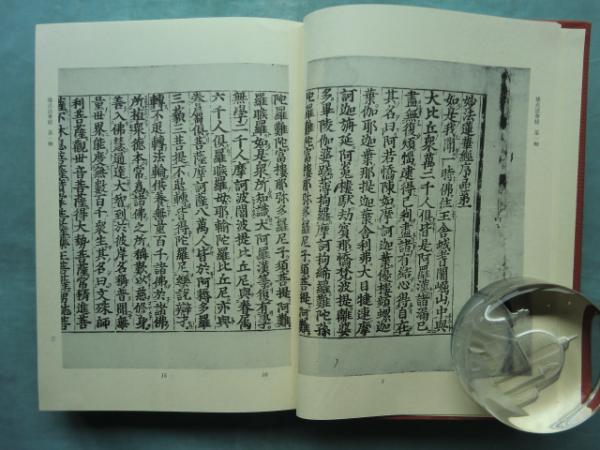 妙法蓮華經序品第一
如是我聞一時佛住王舍城耆闍崛山中與
大比丘衆萬二千人俱皆是阿羅漢諸漏已
盡無復煩惱逮得己利盡諸有結心得自在
其名曰阿若憍陳如摩訶迦葉優樓頻螺迦
葉伽耶迦葉那提迦葉舍利弗大目揵連摩
訶迦旃延阿㝹樓馱劫賓那憍梵波提離婆
多畢陵伽婆蹉薄拘羅摩訶拘絺羅難陀孫
陀羅難陀富樓那弥多羅尼子須菩提阿難
陀羅難陀富樓那弥多羅尼子須菩提阿難
羅睺羅如是衆所知識大阿羅漢等復有學
無學二千人摩訶波闍波提比丘尼與眷屬
六千人俱羅睺羅母耶輸陀羅比丘尼亦與
眷屬俱菩薩摩訶薩八万人皆於阿耨多羅
三藐三菩提不退轉皆得陀羅尼樂說辯才
轉不退轉法輪供養無量百千諸佛於諸佛
所植衆德本常爲諸佛之所稱歎以慈修身
善入佛慧通達大智到於彼岸名稱普聞無
量世界能度無數百千衆生其名曰文殊師
利菩薩觀世音菩薩得大勢菩薩常精進菩
薩不休息菩薩